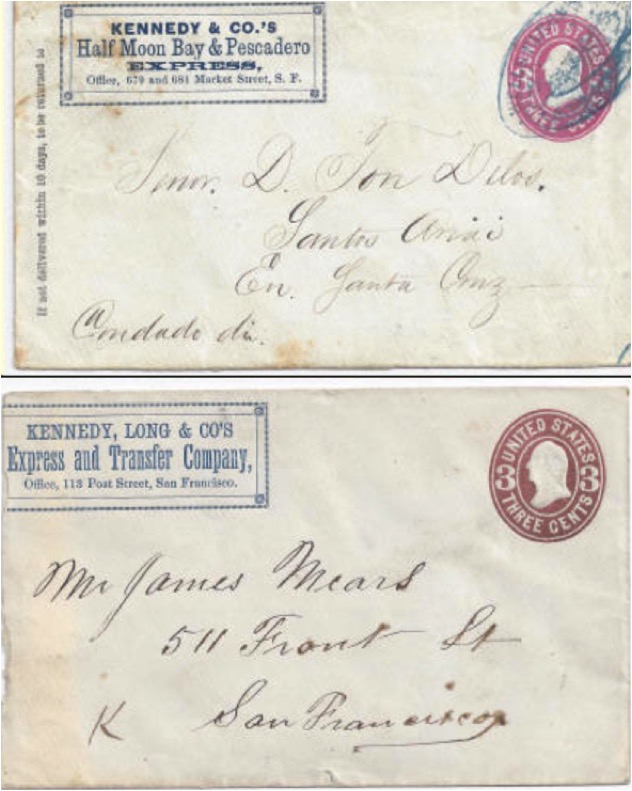 KENNEDY & CO.'S
Half Moon Bay & Pescadero
EXPRESS,
Office, 679 and 681 Market Street, S. F.
If not delivered within 10 days, to be returned to
UNITED STATES
3
THREE CENTS
Senor. D.
Santos
En. Santa Cruz
Condado di.
KENNEDY, LONG & CO'S
Express and Transfer Company,
Office, 113 Post Street, San Francisco.
UNITED STATES
3 3
THREE CENTS
Mr James Mears
511 Front St
San Francisco
K